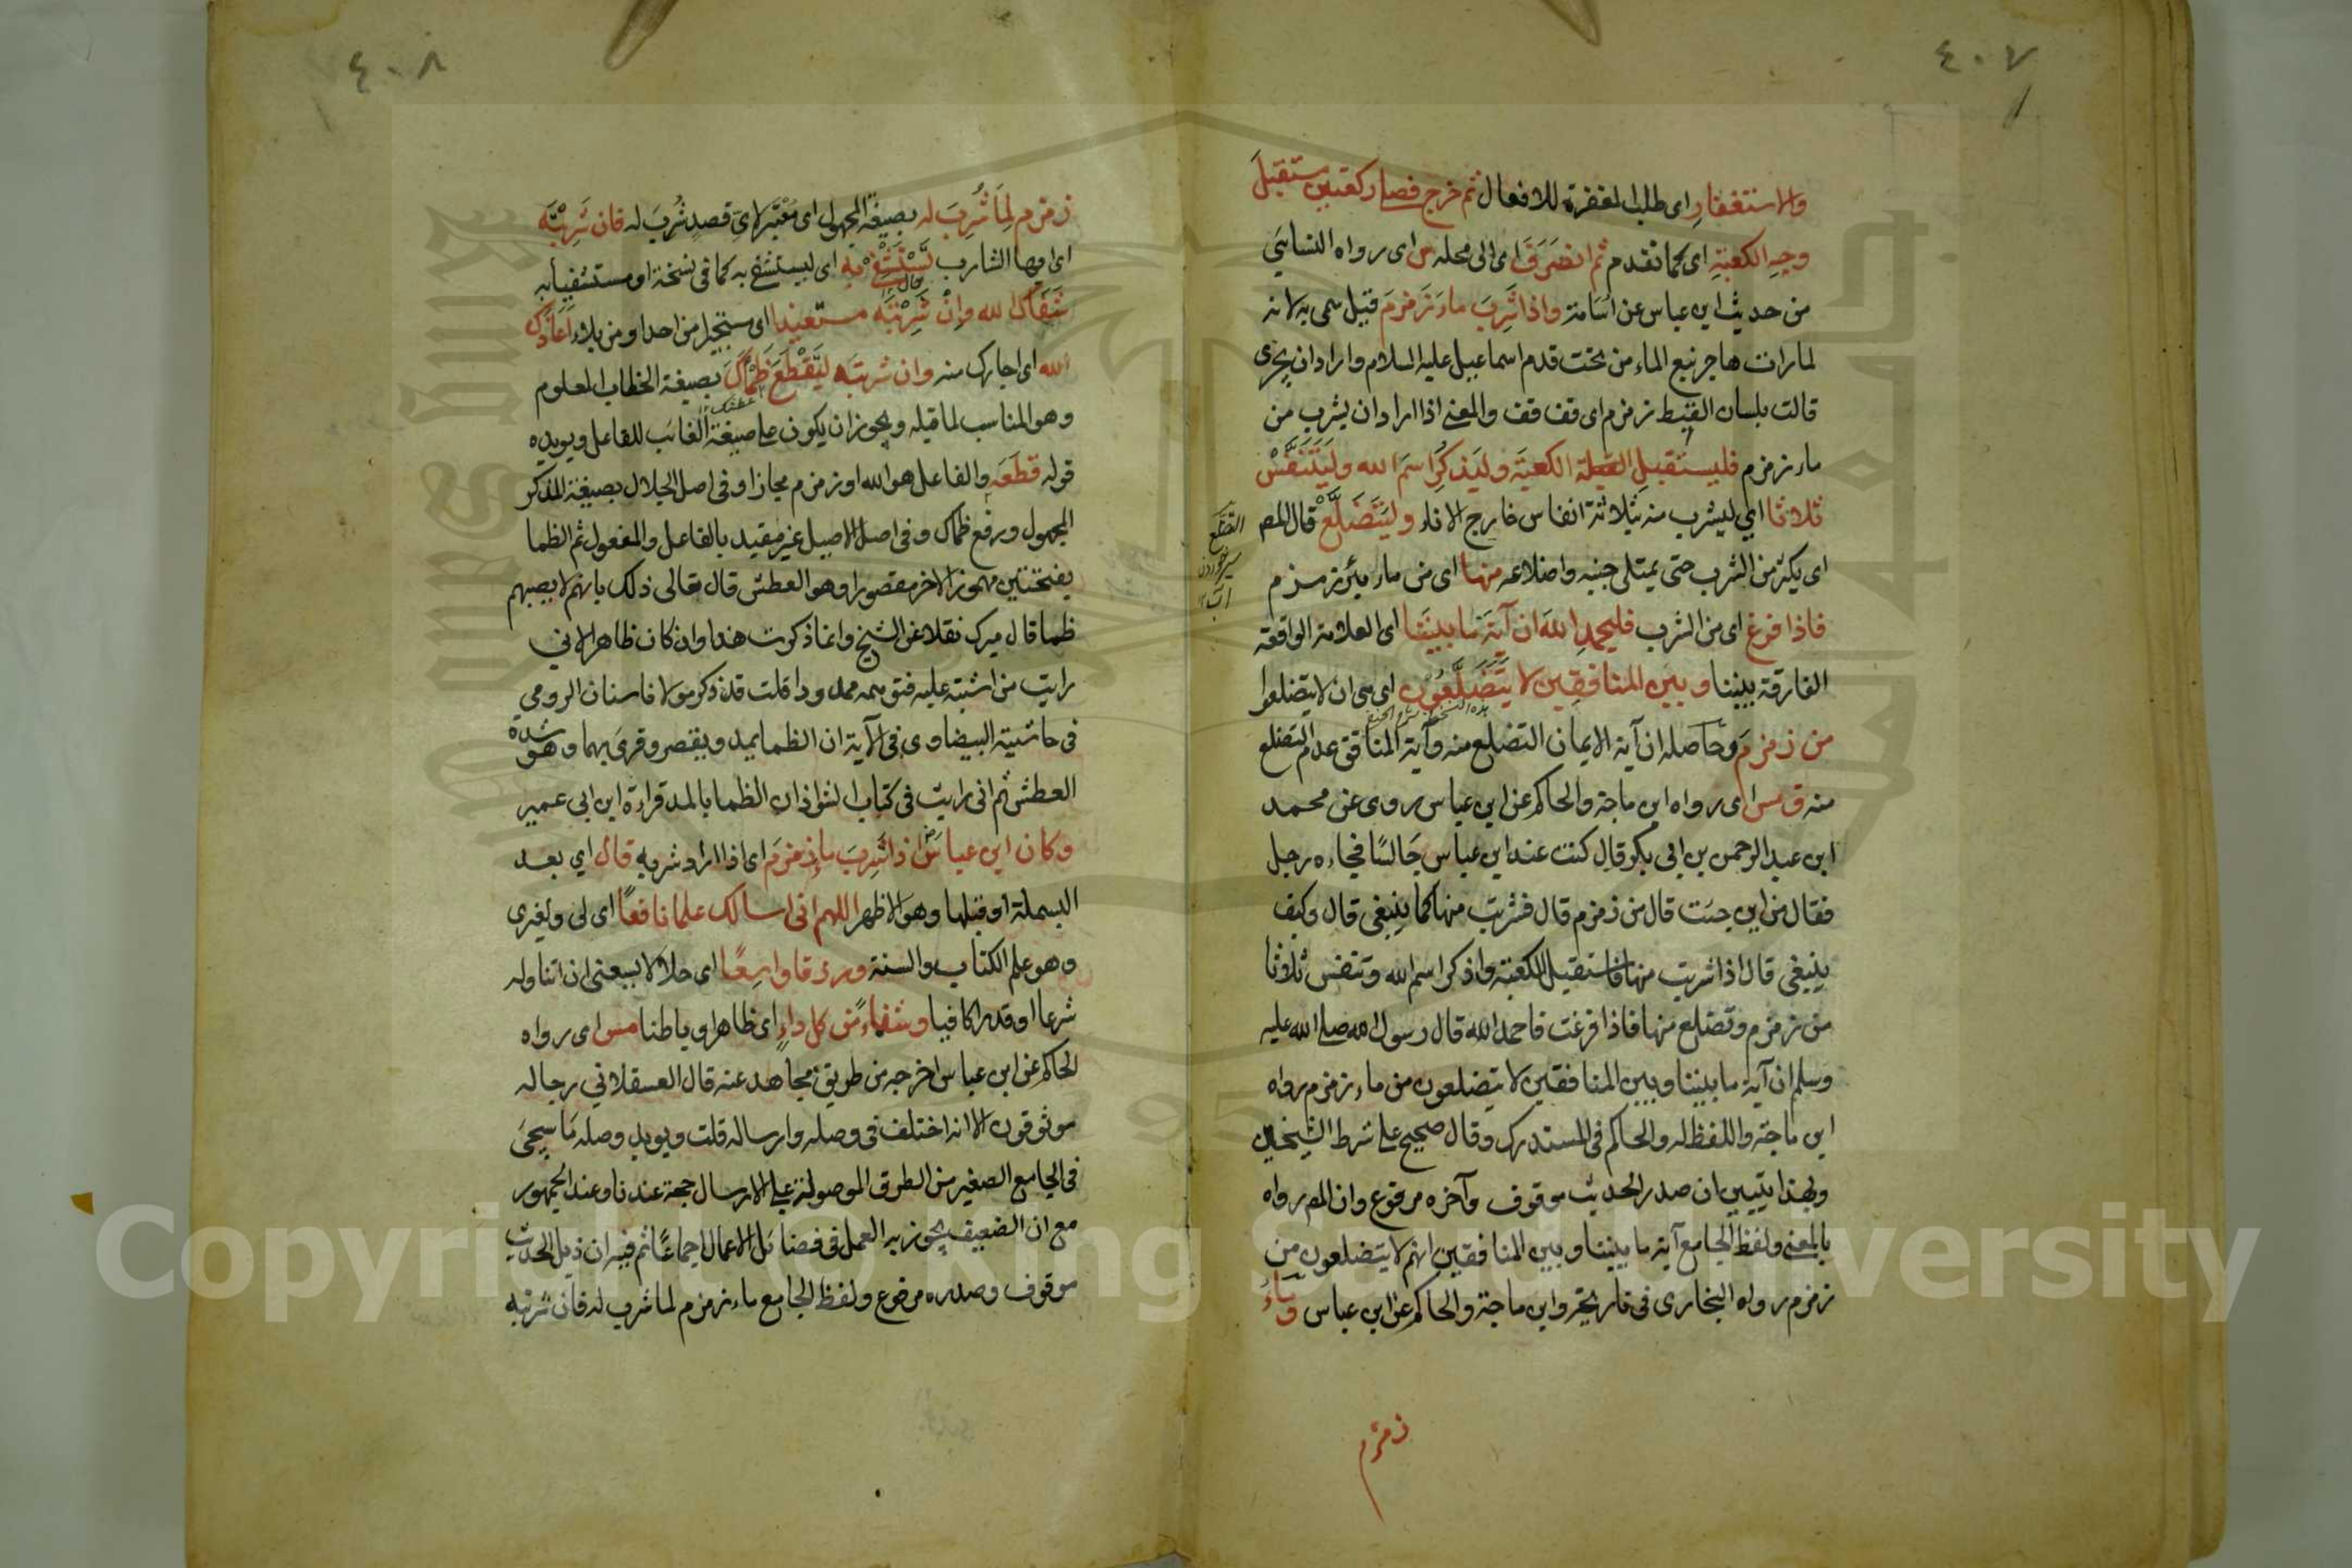 ٤٠٧
والاستغفار اى طلب المغفرة للافعال ثم خرج فصلى ركعتين مستقبل
وجه الكعبة اى كما تقدم ثم انصرف اى الى محله س اى رواه النسايى
من حديث ابن عباس عن اسامة واذا شرب ماء زمزم قيل سمى به لانه
لما رات هاجر نبع الماء من تحت قدم اسماعيل عليه السلام وارادان يجرى
قالت بلسان القبط زمزم اى قف قف والمعنى اذا ارادان يشرب من
ماء زمزم فليستقبل القبلة الكعبة وليذكر اسم الله وليتنفس
ثلاثا اي ليشرب منه بثلاثة انفاس خارج الاناء وليتضلع قال المص
اى يكثر من الشرب حتى يمتلى جنبه واضلاعه منها اى من ماء بئر زمزم
فاذا فرغ اى من الشرب فليحمد الله ان آية ما بيننا اى العلامة الواقعة
الفارقة بيننا وبين المنافقين لا يتضلعون اى هى ان لا يتضلعوا
من زمزم وحاصله ان آية الايمان التضلع منه وآية المنافق عدم التضلع
منه ق مس اى رواه ابن ماجة والحاكم عن ابن عباس روى عن محمد
ابن عبد الرحمن بن ابى بكر قال كنت عند ابن عباس جالسًا فجاءه رجل
فقال من اين جئت قال من زمزم قال فشربت منها كما ينبغى قال وكيف
ينبغى قال اذا شربت منها فاستقبل الكعبة واذكر اسم الله وتتنفس ثلوثا
من زمزم وتضلع منها فاذا فرغت فاحمد الله قال رسول الله صلى الله عليه
وسلم ان آية ما بيننا وبين المنافقين لا يتضلعون من ماء زمزم رواه
ابن ماجة واللفظ له والحاكم فى المستدرك وقال صحيح على شرط الشيخين
وبهذا يتبين ان صدر الحديث موقوف وآخره مرفوع وان المص رواه
بالمعنى ولفظ الجامع آية ما بيننا وبين المنافقين انهم لا يتضلعون من
زمزم رواه البخارى فى تاريخه وابن ماجة والحاكم عن ابن عباس وماء
زمزم
٤٠٨
زمزم لما شرب له بصيغة المجهول اى معتبر لاىّ قصد شُرب له فان شربته
اى ايها الشارب تستشفى به اى ليستشفى به كما فى نسخة او مستشفيا به
شفاك الله وان شربته مستعيذا اى مستجيرا من احد او من بلاء اعاذك
الله اى اجارك منه وان شربته ليقطع ظمأك بصيغة الخطاب المعلوم
وهو المناسب لما قبله ويجوز ان يكون على صيغة الغائب للفاعل ويويده
قوله قطعه والفاعل هو الله او زمزم مجازا وفى اصل الجلال بصيغة المذكر
المجهول ورفع ظماك وفى اصل الاصيل غير مقيد بالفاعل والمفعول ثم الظما
بفتحتين مهموز الاخر مقصورا وهو العطش قال تعالى ذلك بانهم لا يصيبهم
ظما قال ميرك نقلا عن الشيخ وانما ذكرت هذا وان كان ظاهرا لانى
رايت من اشتبه عليه فتوهمه ممدودا قلت قد ذكر مولانا سنان الرومى
فى حاشية البيضاوى فى الآية ان الظما يمد ويقصر وقرئ بهما وهو شدة
العطش ثم انى رايت فى كتاب الشواذ ان الظما بالمد قراءة ابن ابى عمير
وكان ابن عباس اذا شرب ماء زمزم اى اذا اراد شربه قال اي بعد
البسملة او قبلها وهو الاظهر اللهم انى اسالك علما نافعًا اى لى ولغيرى
وهو علم الكتاب والسنة ورزقا واسعًا اى حلالا يسعنى ان اتناوله
شرعا او قدرا كافيا وشفاءً من كل داء اى ظاهرا وباطنا مس اى رواه
الحاكم عن ابن عباس اخرجه من طريق مجاهد عنه قال العسقلانى رجاله
موثوقون الا انه اختلف فى وصله وارساله قلت ويويد وصله ما سيجئ
فى الجامع الصغير من الطرق الموصولة على الارسال حجة عندنا وعند الجمهور
مع ان الضعيف يجوز به العمل فى فضائل الاعمال اجماعًا ثم فيه ان ذيل الحديث
موقوف وصدره مرفوع ولفظ الجامع ماء زمزم لما شرب له فان شربته
Copyright © King Saud University